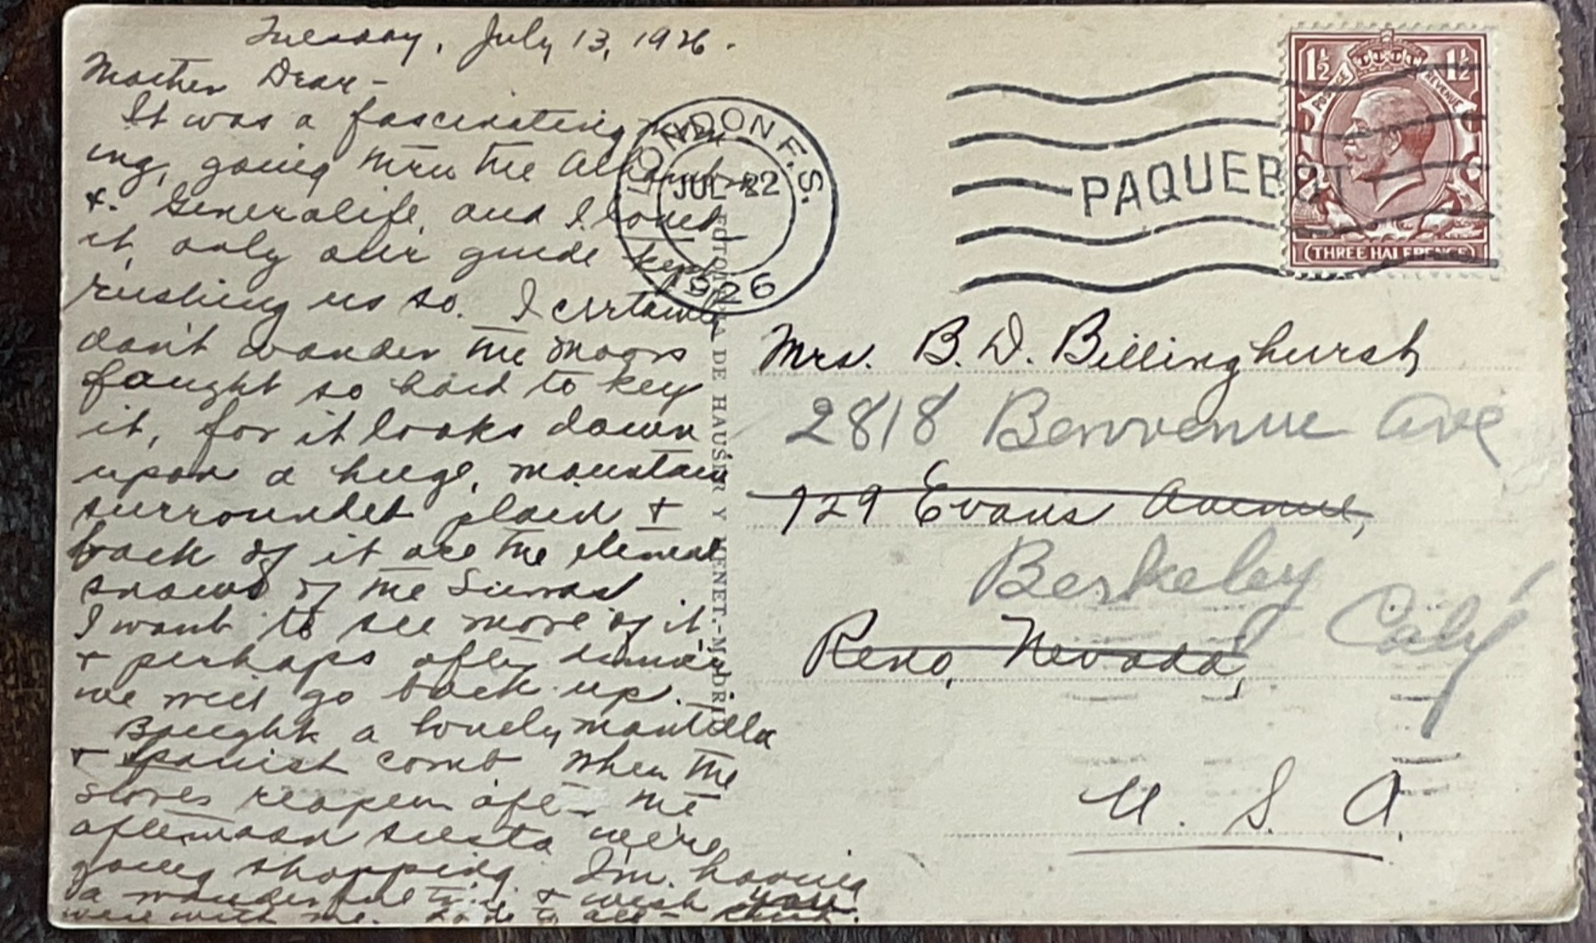 Tuesday, July 13, 1926.
Mother Dear -
It was a fascinating morn
ing, going thru the Alhambra
+ Generalife and I loved
it, only our guide kept
rushing us so. I certainly
don't wonder the Moors
fought so hard to keep
it, for it looks down
upon a huge, mountain
surrounded plain +
back of it are the eternal
snows of the Sierras
I want to see more of it
+ perhaps after dinner
we will go back up.
Bought a lovely mantilla
+ Spanish comb When the
stores reopen after the
afternoon siesta we're
going shopping. I'm having
a wonderful trip + wish you
were with me. to all -
LONDON F.S.
JUL 22
1926
PAQUEBOT
1½ 1½
POSTAGE REVENUE
THREE HALFPENCE
Mrs. B. D. Billinghurst
2818 Benvenue Ave
729 Evans Avenue,
Berkeley
Calif
Reno, Nevada,
U. S. A.
DE HAUSER Y MENET.-MADRID